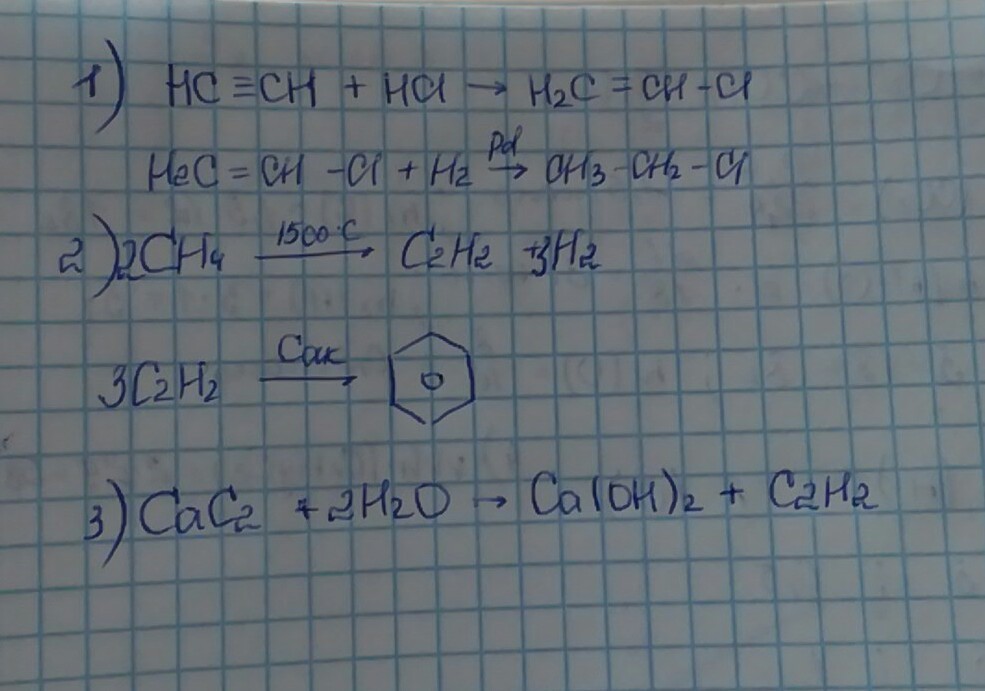 1) HC≡CH + HCl → H₂C=CH-Cl
H₂C=CH-Cl + H₂ Pd → CH₃-CH₂-Cl
2) 2CH₄ 1500°C → C₂H₂ + 3H₂
3C₂H₂ Cак →
3) CaC₂ + 2H₂O → Ca(OH)₂ + C₂H₂